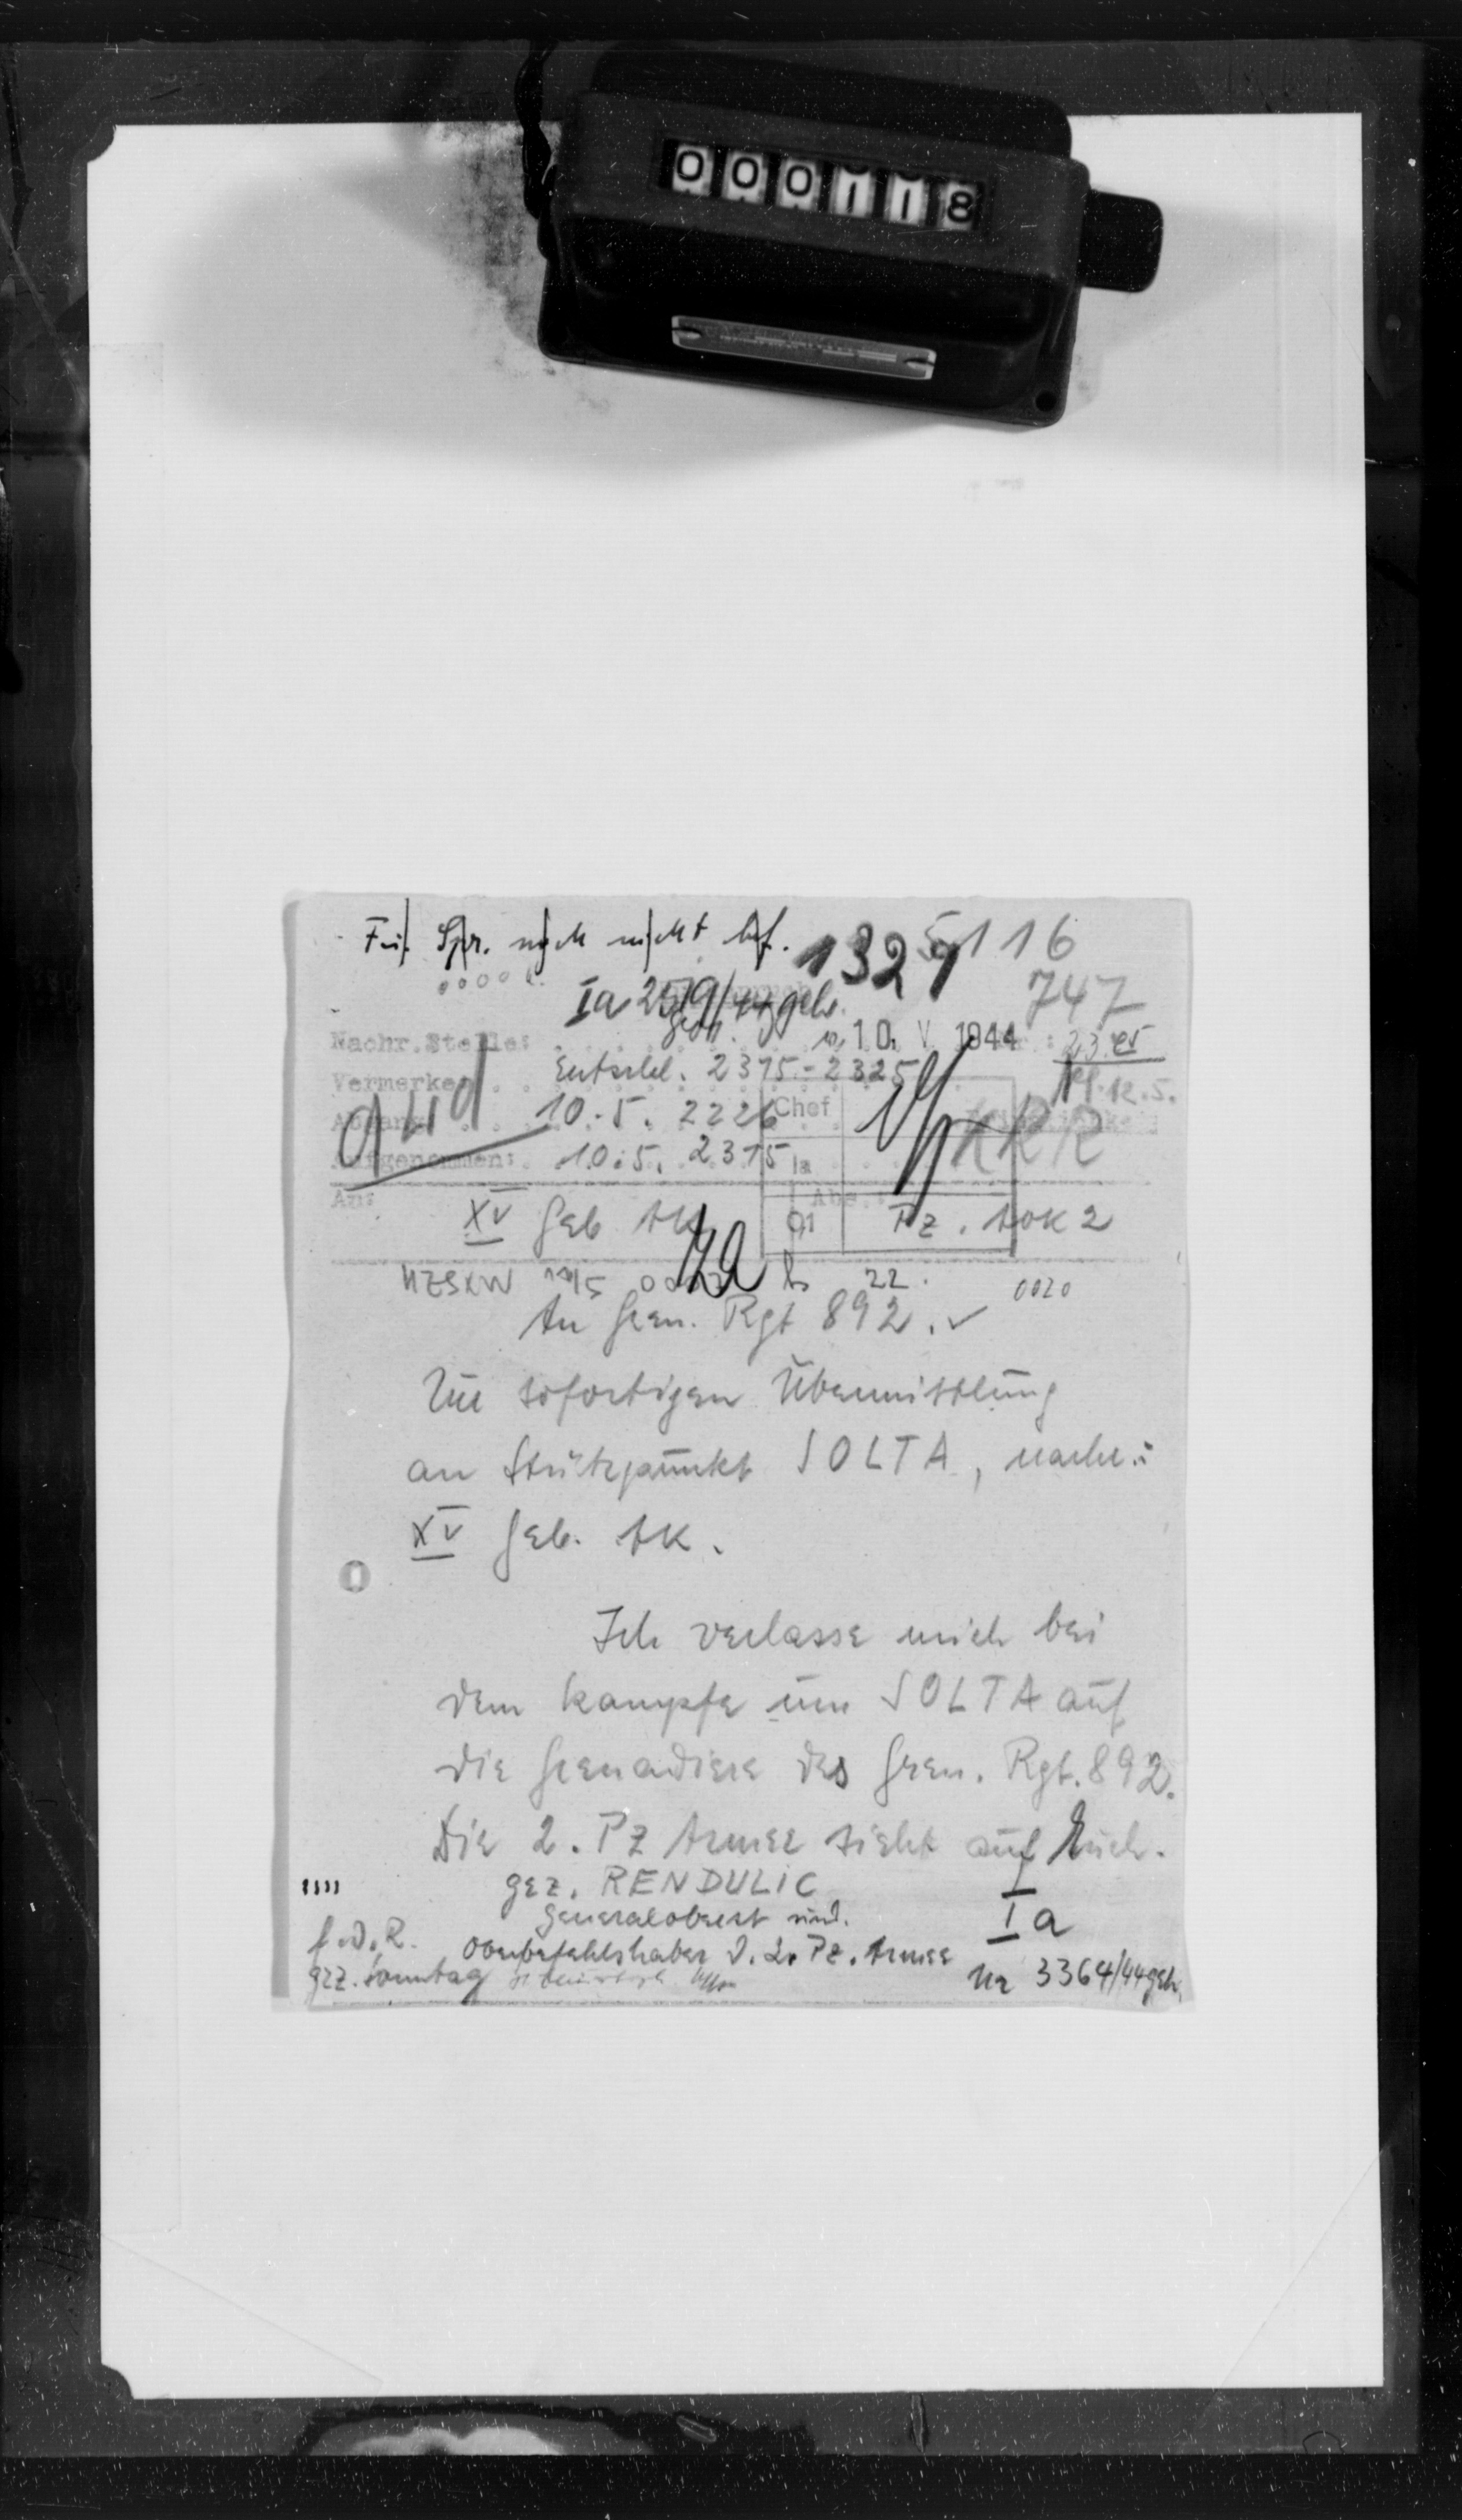 000118
Fu. Spr. noch nicht bef.
1327
5116
Ia 2519/44 geh.
747
geh.
Nachr.Stelle:
10. V. 1944
Nr.:
Vermerke:
Entschl. 2315 - 2325
12.5.
10.5. 2226
Chef
KRR
Aufgenommen: 10.5. 2315
Ia
An:
Abs.:
XV Geb AK
O1
Pz. AOK 2
HZSKW
22.
0020
An Gren. Rgt 892.
Zur sofortigen Übermittlung
an Stützpunkt SOLTA, nachr.:
XV Geb. AK.
Ich verlasse mich bei
dem Kampfe um SOLTA auf
die Grenadiere des Gren. Rgt. 892.
Die 2. Pz Armee sieht auf Euch.
gez. RENDULIC
Generaloberst und
Ia
f.d.R.
Oberbefehlshaber d. 2. Pz. Armee
gez. Sonntag
Nr 3364/44 geh.